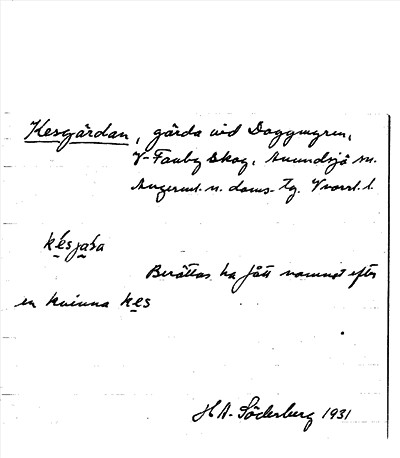 Kesgärdan, gärda vid Daggmyren,
V-Fanby Skog, Anundsjö sn.
Ångerml. n. doms- tg. Vnorrl. l.
késjaɹa
Berättas ha fått namnet efter
en kvinna kes
H A- Söderberg 1931